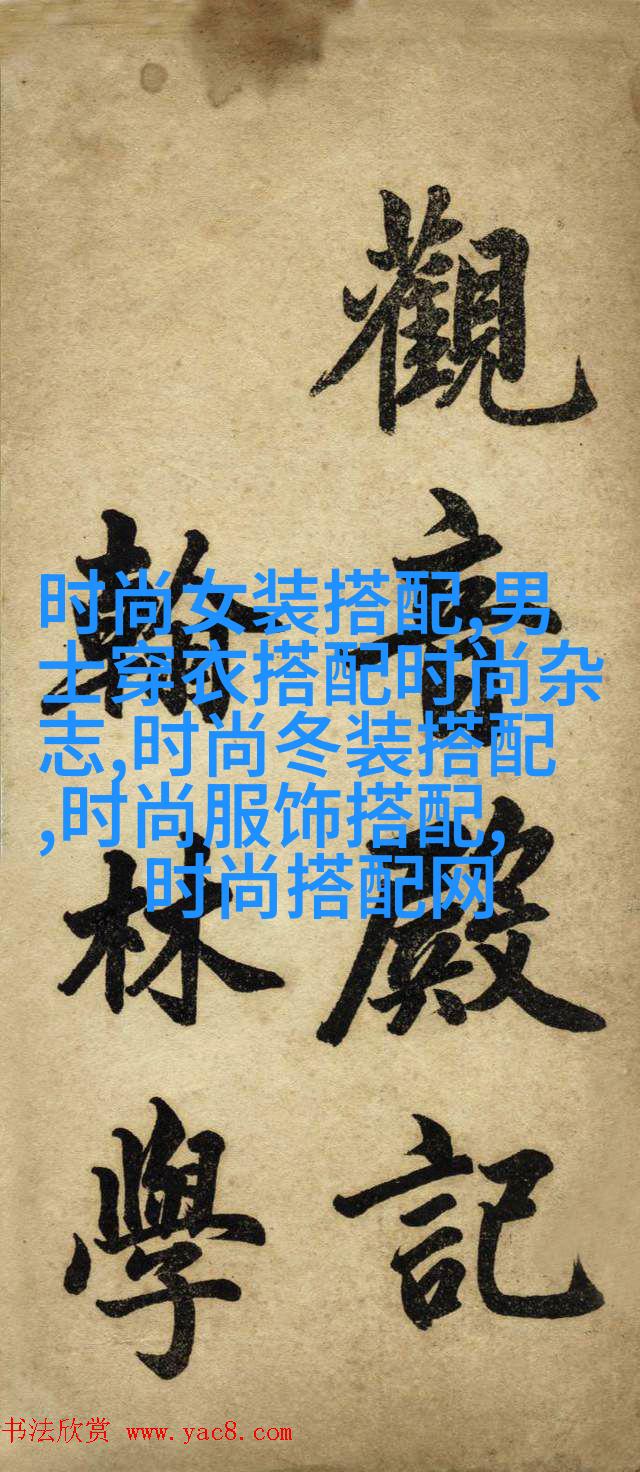 觀音殿記
翰林學
时尚女装搭配,男
士穿衣搭配时尚杂
志,时尚冬装搭配
,时尚服饰搭配,
时尚搭配网
书法欣赏 www.yac8.com